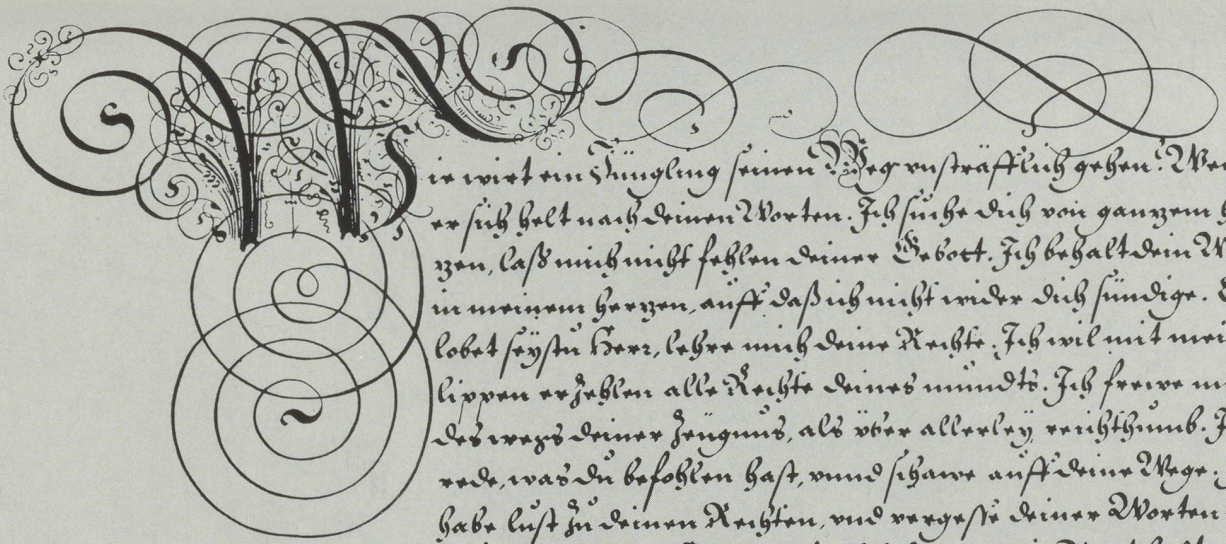 Wie wirt ein Jüngling seinen Weg vnsträfflich gehen? Wen
er sich helt nach deinen Worten. Ich suche dich von gantzem h
tzen, laß mich nicht fehlen deiner Gebott. Ich behalt dein W
in meinem hertzen, auff daß ich nicht wider dich sündige. G
lobet seystu Herr, lehre mich deine Rechte. Ich wil mit mei
lippen erzehlen alle Rechte deines mundts. Ich frewe mi
des wegs deiner Zeügnus, als vber allerley reichthumb. I
rede, was du befohlen hast, vnnd schawe auff deine Wege.
habe lust zu deinen Rechten, vnd vergesse deiner Worten